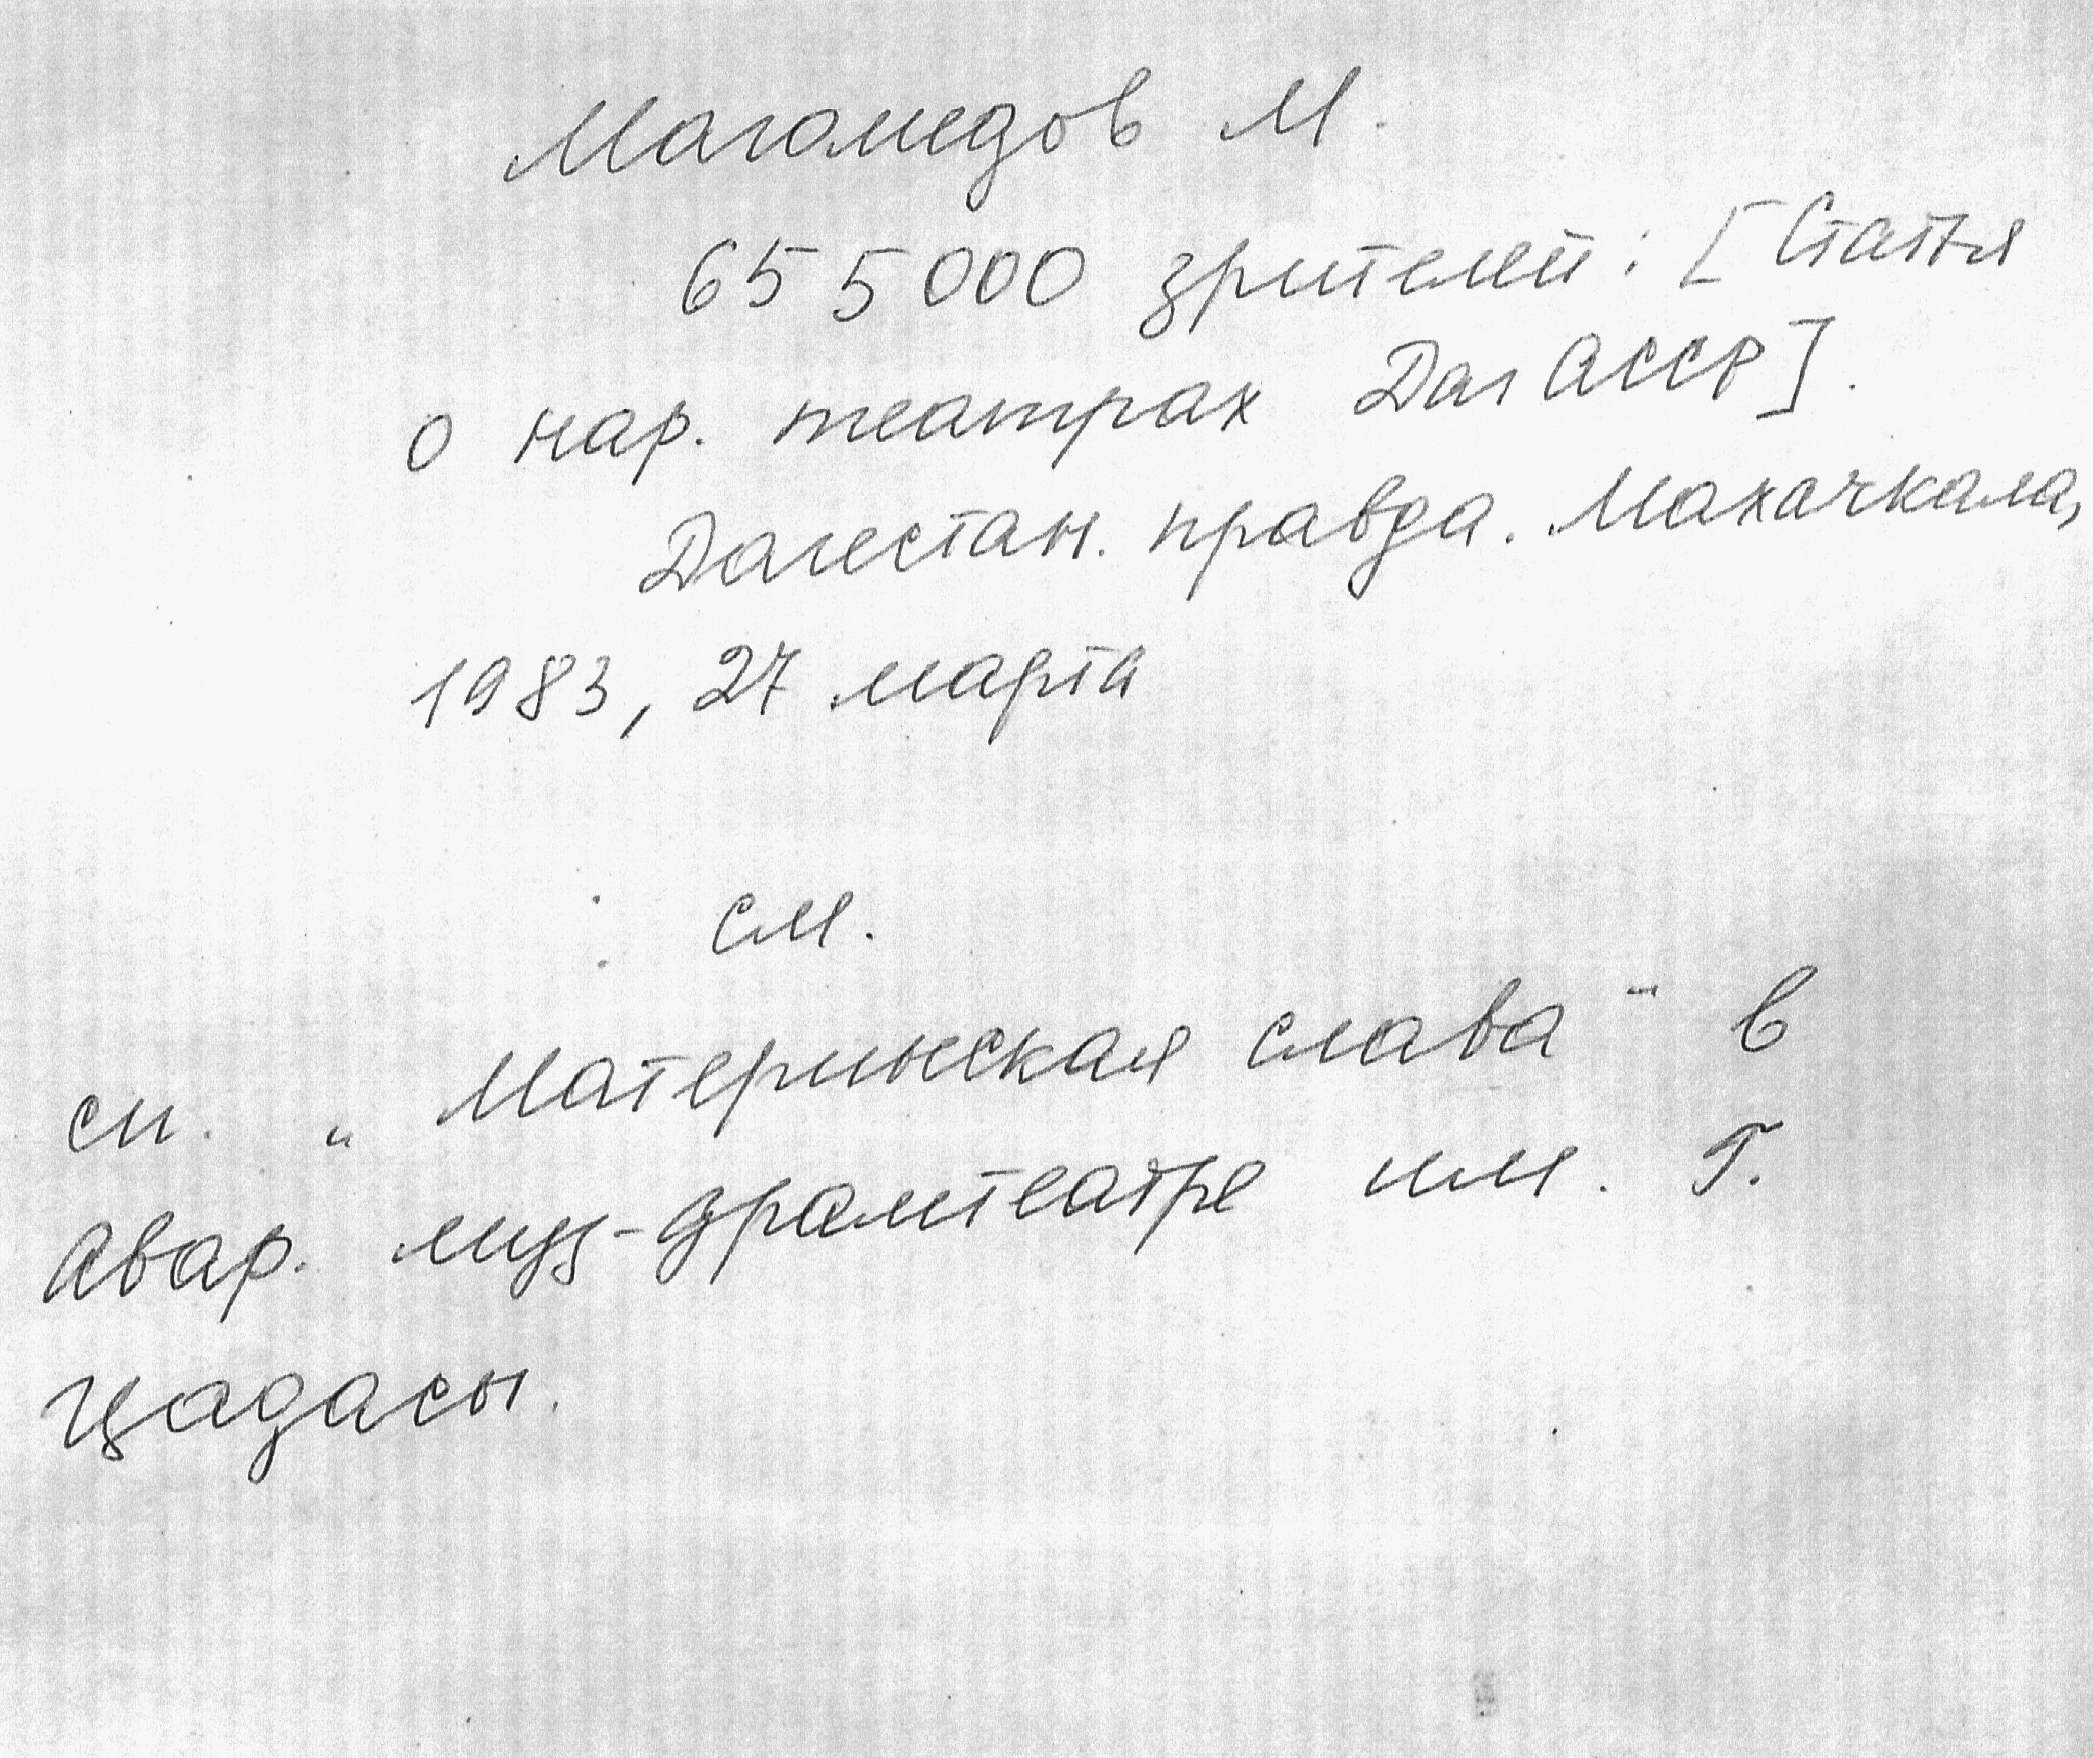 Магомедов М.
655000 зрителей: [Статья
о нар. театрах ДагАССР].
Дагестан. правда. Махачкала,
1983, 27 марта
см.
сп. „Материнская слава" в
Авар. муз-драмтеатре им. Г.
Цадасы.